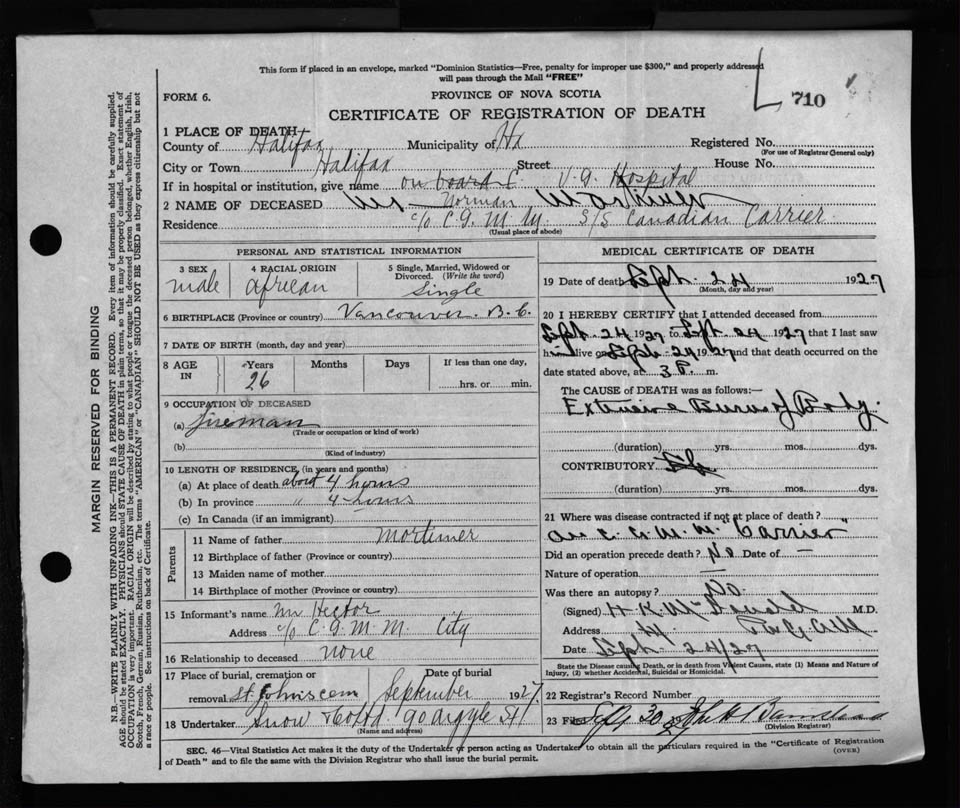 This form if placed in an envelope, marked "Dominion Statistics—Free, penalty for improper use $300," and properly addressed
will pass through the Mail "FREE"
710
FORM 6.
PROVINCE OF NOVA SCOTIA
CERTIFICATE OF REGISTRATION OF DEATH
1 PLACE OF DEATH
County of Halifax Municipality of Hx Registered No.
(For use of Registrar General only)
City or Town Halifax Street House No.
If in hospital or institution, give name on board C. V. G. Hospital
2 NAME OF DECEASED Mr. Norman Mortimer
Residence c/o C.G.M.M. S/S Canadian Carrier
(Usual place of abode)
PERSONAL AND STATISTICAL INFORMATION
3 SEX male
4 RACIAL ORIGIN African
5 Single, Married, Widowed or Divorced. (Write the word) Single
6 BIRTHPLACE (Province or country) Vancouver B.C.
7 DATE OF BIRTH (month, day and year)
8 AGE IN Years 26 Months Days If less than one day, hrs. or min.
9 OCCUPATION OF DECEASED
(a) fireman
(Trade or occupation or kind of work)
(b)
(Kind of industry)
10 LENGTH OF RESIDENCE, (in years and months)
(a) At place of death about 4 hours
(b) In province " 4 hours
(c) In Canada (if an immigrant)
Parents
11 Name of father Mortimer
12 Birthplace of father (Province or country)
13 Maiden name of mother
14 Birthplace of mother (Province or country)
15 Informant's name Mr Hector
Address c/o C.G.M.M. City
16 Relationship to deceased none
17 Place of burial, cremation or Date of burial
removal St. Johns cem September 1927
18 Undertaker Snow & Co Ltd. 90 Argyle St
(Name and address)
MEDICAL CERTIFICATE OF DEATH
19 Date of death Sept. 24 1927
(Month, day and year)
20 I HEREBY CERTIFY that I attended deceased from
Sept 24 1927 to Sept 24 1927 that I last saw
him alive on Sept 24 1927 and that death occurred on the
date stated above, at 3 P. m.
The CAUSE OF DEATH was as follows:—
Extensive Burns of Body.
(duration) yrs. mos. dys.
CONTRIBUTORY
(duration) yrs. mos. dys.
21 Where was disease contracted if not at place of death?
C.G.M.M. "Carrier"
Did an operation precede death? No Date of —
Nature of operation —
Was there an autopsy? No.
(Signed) H. K. McDonald M.D.
Address
Date Sept. 24/27
State the Disease causing Death, or in death from Violent Causes, state (1) Means and Nature of
Injury, (2) whether Accidental, Suicidal or Homicidal.
22 Registrar's Record Number
23 Filed Sept 30
(Division Registrar)
SEC. 46—Vital Statistics Act makes it the duty of the Undertaker or person acting as Undertaker to obtain all the particulars required in the "Certificate of Registration
of Death" and to file the same with the Division Registrar who shall issue the burial permit.
(OVER)
MARGIN RESERVED FOR BINDING
N.B.—WRITE PLAINLY WITH UNFADING INK—THIS IS A PERMANENT RECORD. Every item of information should be carefully supplied.
AGE should be stated EXACTLY. PHYSICIANS should STATE CAUSE OF DEATH in plain terms, so that it may be properly classified. Exact statement of
OCCUPATION is very important. RACIAL ORIGIN will be described by stating to what people or tongue the deceased person belonged, whether English, Irish,
Scotch, French, German, Russian, Ruthenian, etc. The terms "AMERICAN" or "CANADIAN" SHOULD NOT BE USED as they express citizenship but not
a race or people. See instructions on back of Certificate.